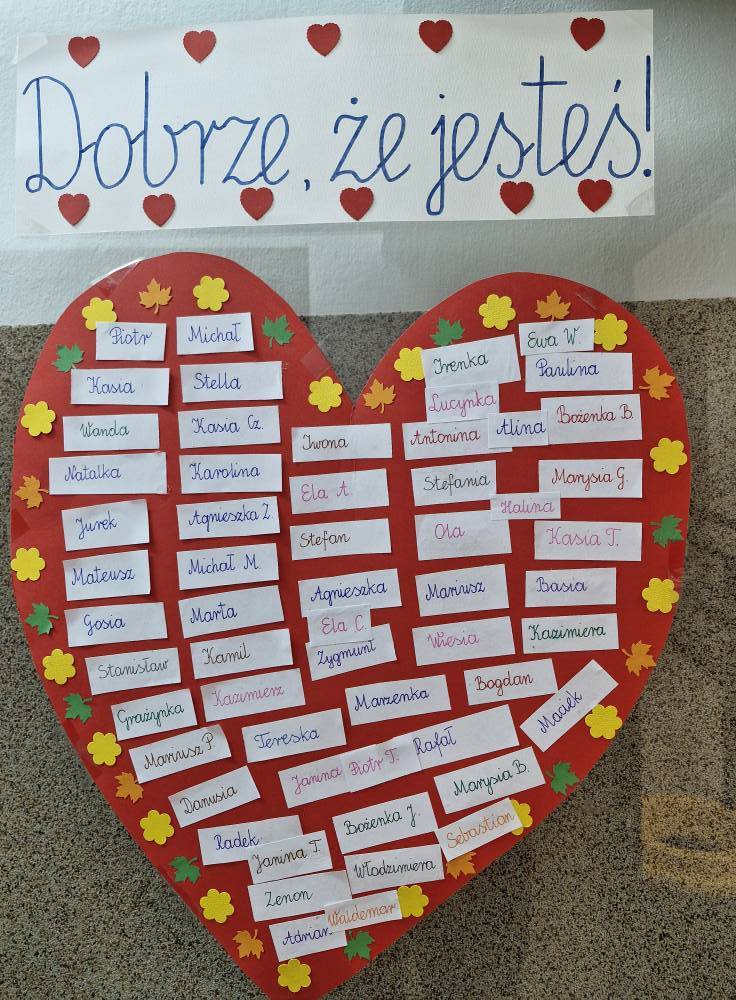 Dobrze, że jesteś!
Piotr
Michał
Kasia
Stella
Wanda
Kasia Cz.
Natalka
Karolina
Jurek
Agnieszka Z.
Mateusz
Michał M.
Gosia
Marta
Stanisław
Kamil
Grażynka
Kazimierz
Mariusz P.
Tereska
Danusia
Iwona
Ela A.
Stefan
Agnieszka
Ela C.
Zygmunt
Marzenka
Irenka
Ewa W.
Paulina
Lucynka
Antonina
Alina
Bożenka B.
Stefania
Marysia G.
Halina
Ola
Kasia T.
Mariusz
Basia
Wiesia
Kazimiera
Bogdan
Maciek
Janina
Piotr T.
Rafał
Marysia B.
Radek
Janina T.
Bożenka J.
Sebastian
Włodzimiera
Zenon
Waldemar
Adrian